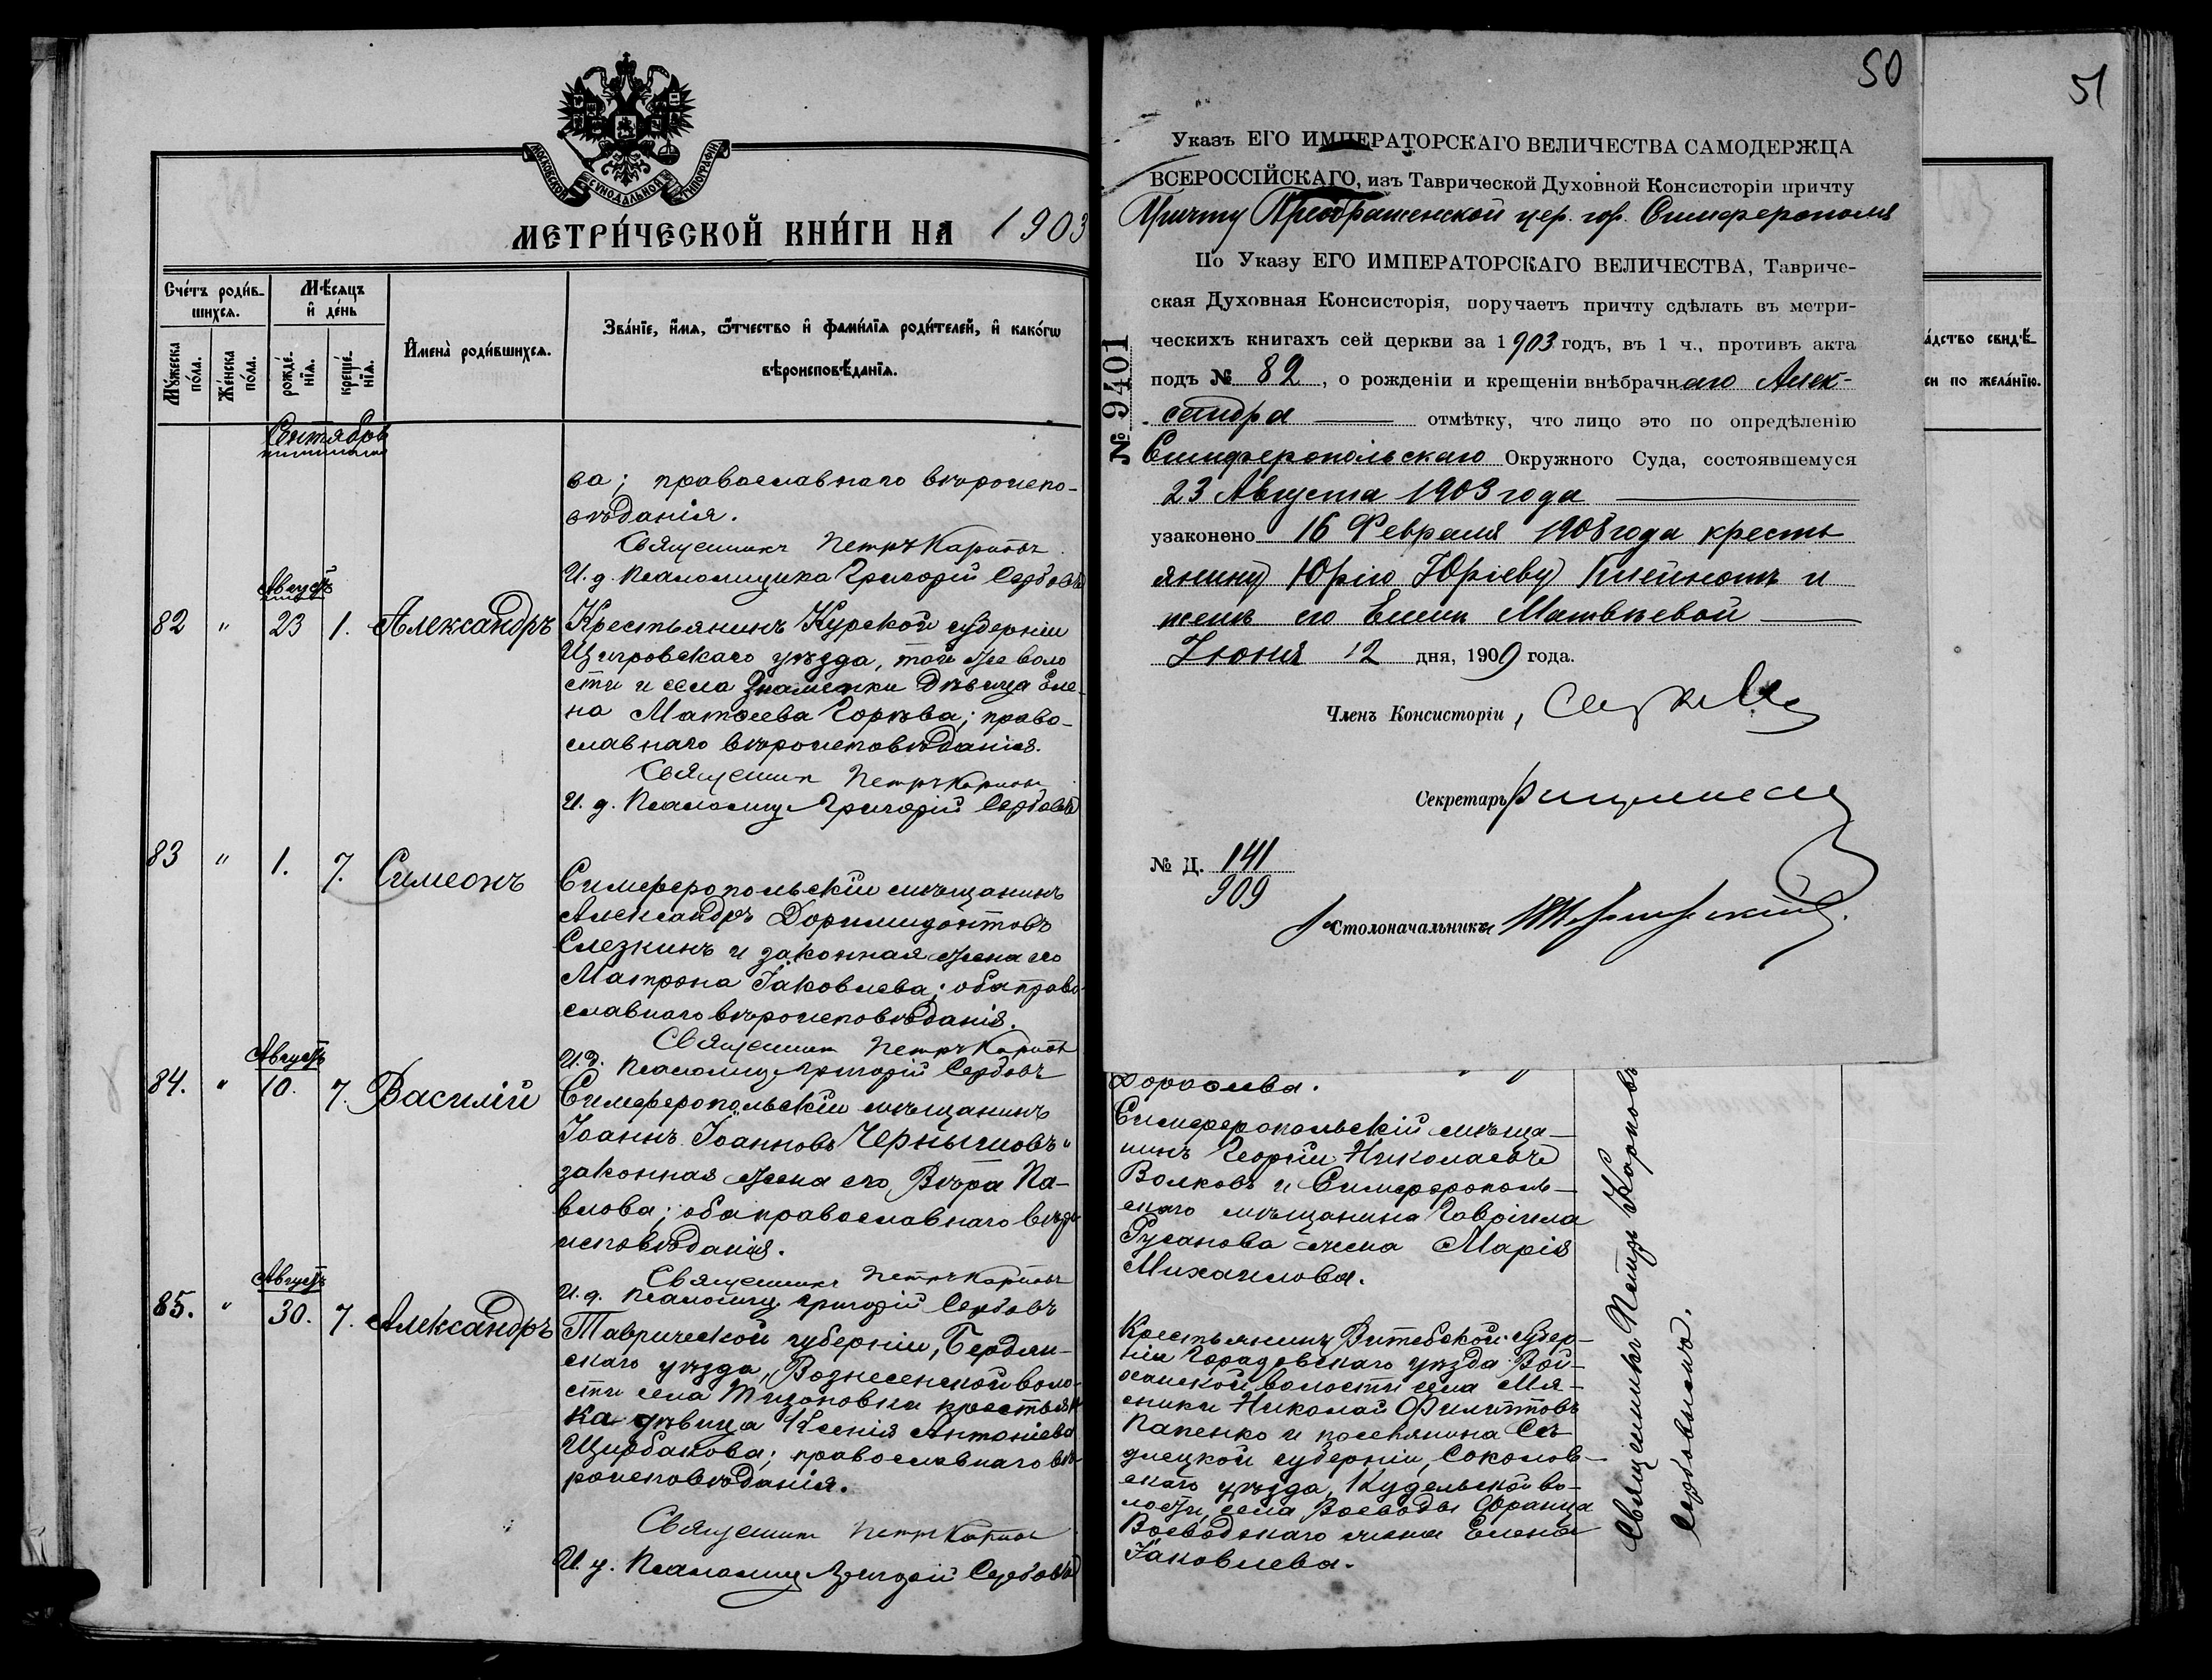 МОСКОВСКОЙ СѴНОДАЛЬНОЙ ТИПОГРАФІИ
МЕТРИ́ЧЕСКОЙ КНИ́ГИ НА 1903
Сче́тъ роди́в-
шихся.
Мѣ́сяцъ
и҆ де́нь
Мꙋ́жеска
по́ла.
Же́нска
по́ла.
рожде́-
нїя.
креще́-
нїя.
И҆мена̀ роди́вшихся.
Зва́нїе, и҆́мя, ѻ҆́тчество и҆ фами́лїя роди́телей, и҆ како́гѡ
вѣроисповѣ́данїя.
Сентябрь
ва; православнаго вѣроиспо-
вѣданія.
Священникъ Петръ Карповъ
И. д. Псаломщика Григорій Сербовъ
Августъ
82 " 23 1. Александръ
Крестьянинъ Курской губерніи
Щигровскаго уѣзда, той же воло
сти и села Знаменки дѣвица Еле-
на Матѳеева Горѣва; право-
славнаго вѣроисповѣданія.
Священник Петръ Карповъ
И. д. Псаломщ Григорій Сербовъ
83 " 1. 7. Симеонъ
Симферопольскій мѣщанинъ
Александръ Доримидонтовъ
Слезкинъ и законная жена его
Матрона Іаковлева; оба право-
славнаго вѣроисповѣданія.
Священник Петръ Карповъ
И. д. Псаломщ Григорій Сербовъ
Августъ
84. " 10. 7. Василій
Симферопольскій мѣщанинъ
Іоаннъ Іоанновъ Чернышовъ и
законная жена его Вѣра Па-
влова; оба православнаго вѣро
исповѣданія.
Священникъ Петръ Карповъ
И. д. Псаломщ Григорій Сербовъ
Августъ
85. " 30. 7. Александръ
Таврической губерніи, Бердян-
скаго уѣзда, Вознесенской воло-
сти села Тихоновки крестьян
ка дѣвица Ксенія Антоніева
Щирбакова; православнаго вѣ-
роисповѣданія.
Священник Петр Карпов
И. д. Псаломщ Григорій Сербовъ
50
51
Указъ ЕГО ИМПЕРАТОРСКАГО ВЕЛИЧЕСТВА САМОДЕРЖЦА
ВСЕРОССІЙСКАГО, изъ Таврической Духовной Консисторіи причту
Причту Преображенской цер. гор. Симферополя
По Указу ЕГО ИМПЕРАТОРСКАГО ВЕЛИЧЕСТВА, Тавриче-
ская Духовная Консисторія, поручаетъ причту сдѣлать въ метри-
ческихъ книгахъ сей церкви за 1903 годъ, въ 1 ч., противъ акта
подъ № 82, о рожденіи и крещеніи внѣбрачнаго Алек-
сандра отмѣтку, что лицо это по опредѣленію
Симферопольскаго Окружного Суда, состоявшемуся
23 Августа 1903 года
узаконено 16 Февраля 1908 года кресть
янину Юрію Юріеву Клейнотъ и
женѣ его Еленѣ Матвѣевой
Іюня 12 дня, 1909 года.
№ 9401
Членъ Консисторіи,
Секретарь
№ Д. 141
909
Столоначальникъ
а́дство свидѣ̑-
си по жела́нїю.
Дороѳеева.
Симферопольскій мѣща-
нинъ Георгій Николаевъ
Волковъ и Симферополь-
скаго мѣщанина Гавріила
Русанова жена Марія
Михаилова.
Крестьянинъ Витебской губер-
ніи Городовскаго уѣзда Вой-
ханской волости села Мя-
сники Николай Филиповъ
Папенко и поселянина Сѣ-
длецкой губерніи, Соколов-
скаго уѣзда, Кудельской во-
лости, села Воеводы Франца
Воеводскаго жена Елена
Іаковлева.
Священникъ Петръ Карповъ
Сербовымъ.